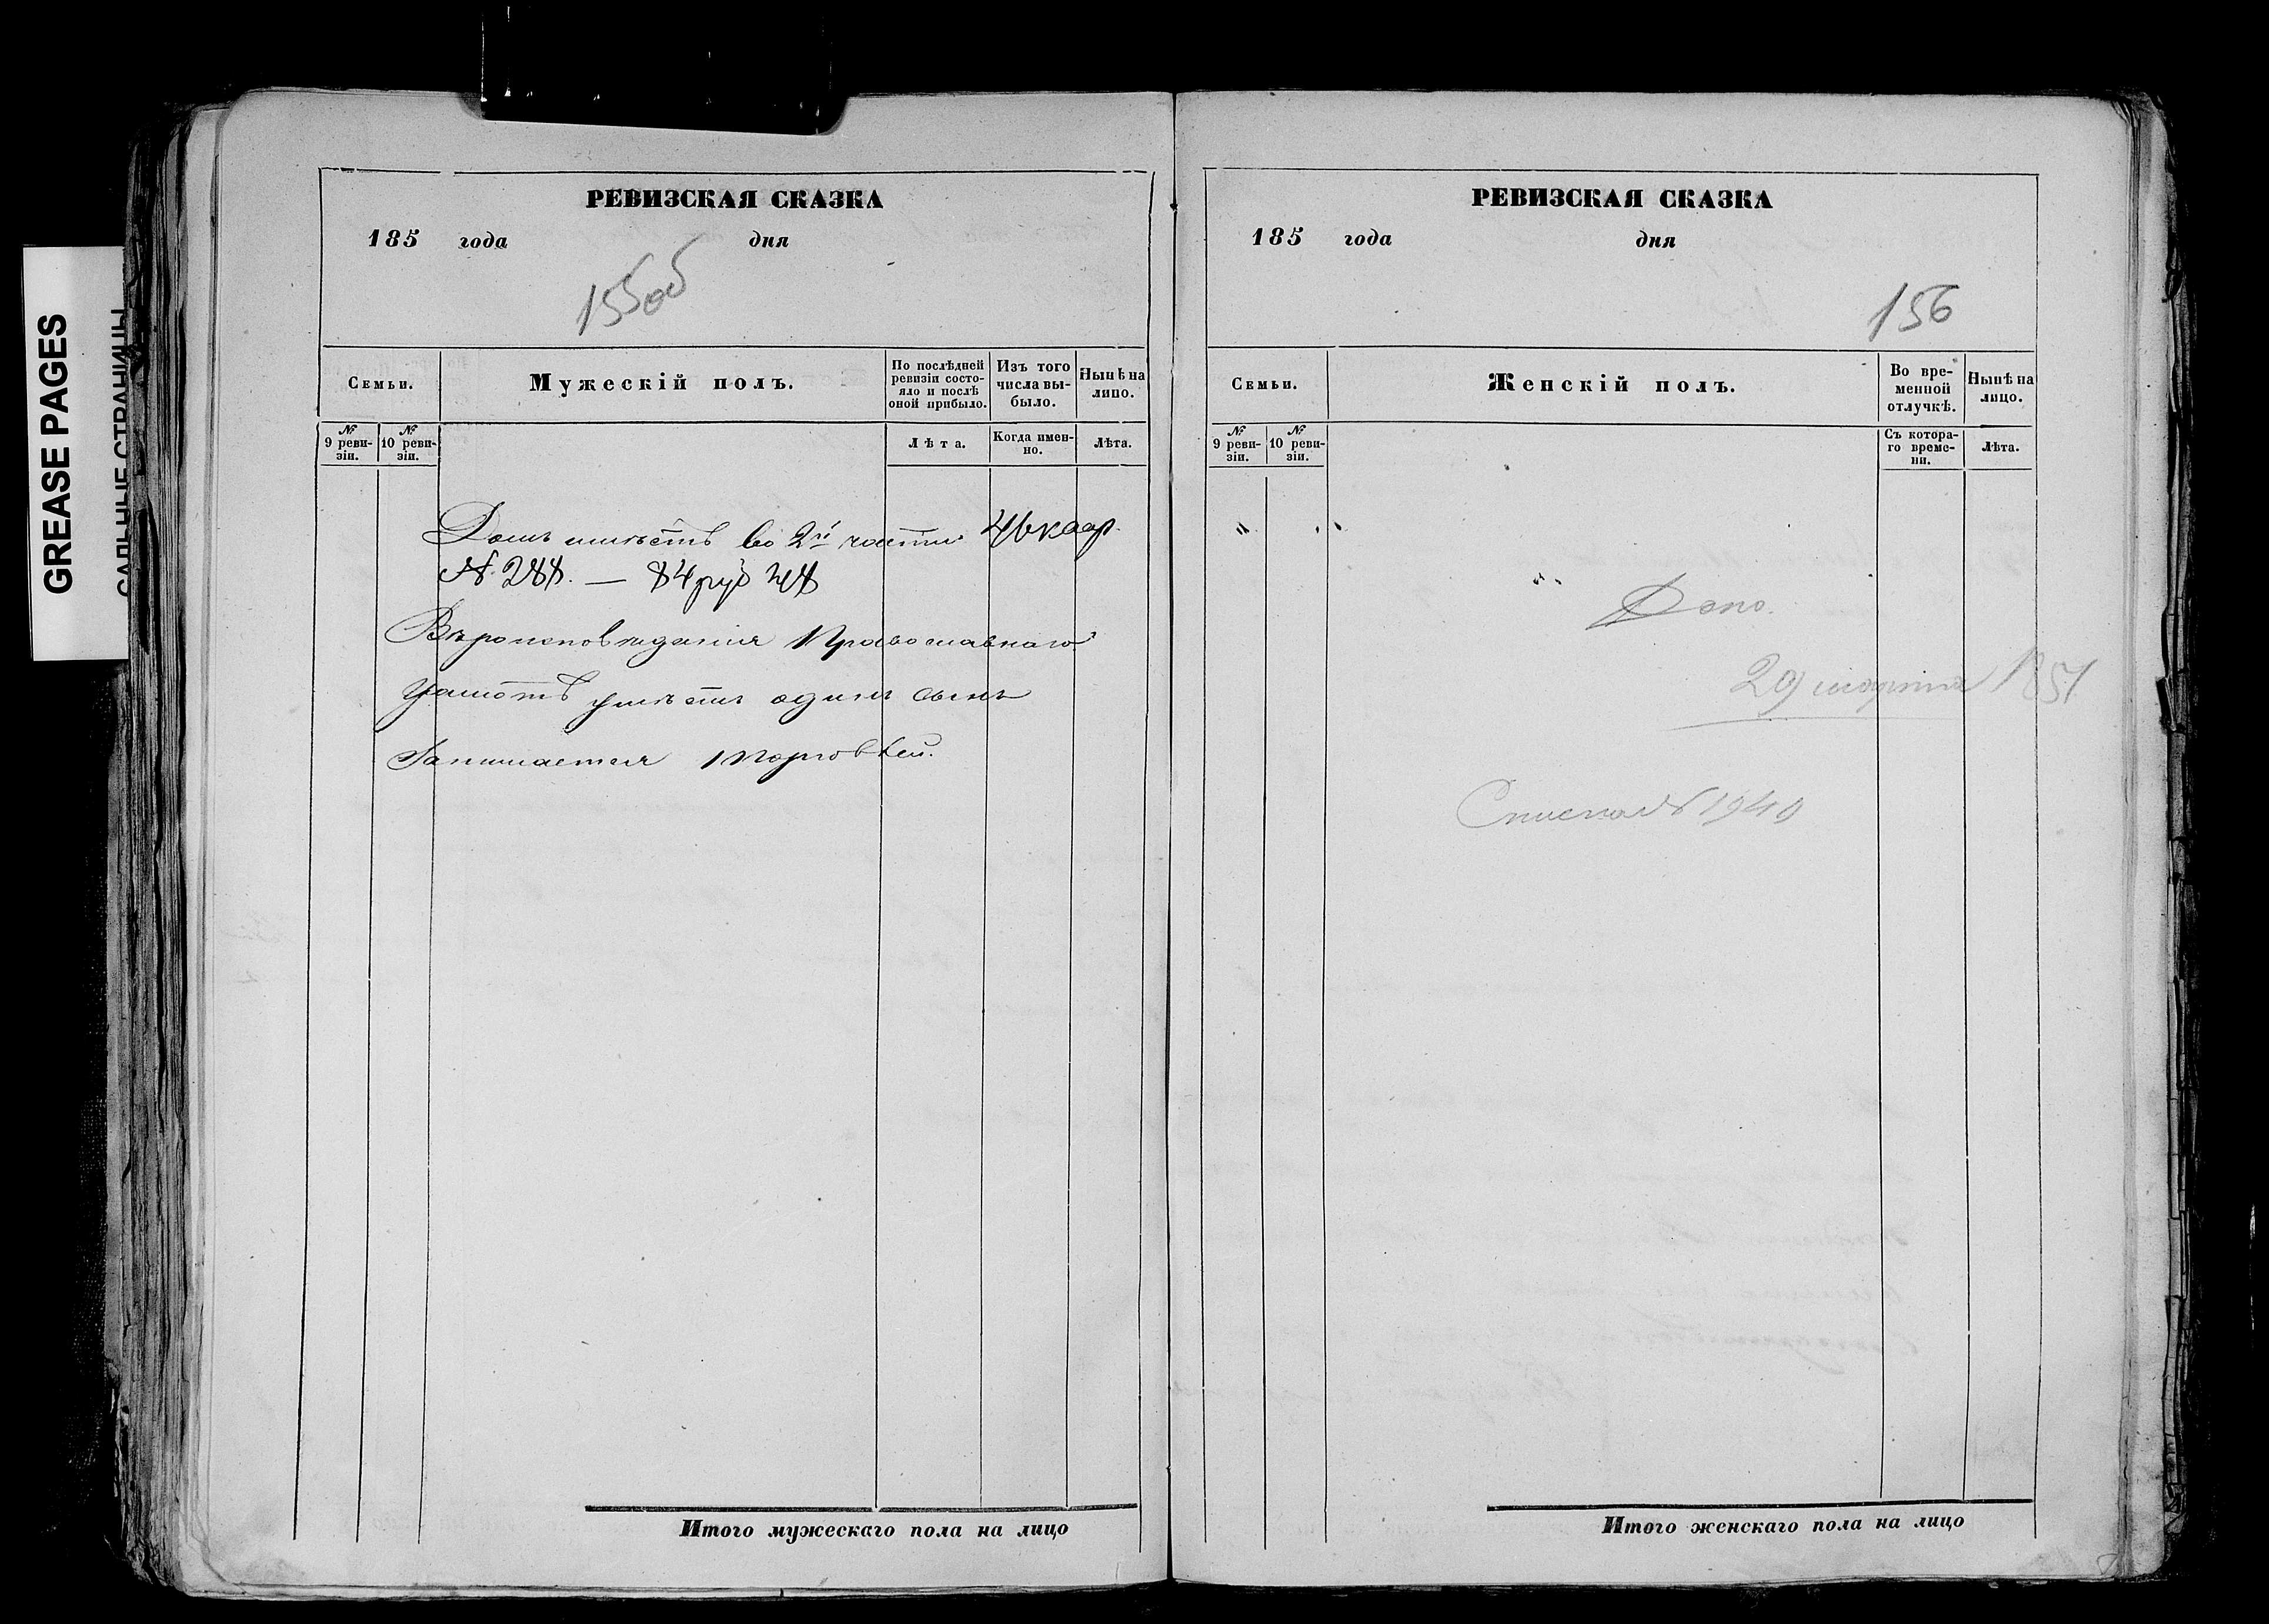 GREASE PAGES
САЛЬНЫЕ СТРАНИЦЫ
РЕВИЗСКАЯ СКАЗКА
185 года дня
155об
Семьи.
Мужескій полъ.
По послѣдней ревизіи состо-
яло и послѣ
оной прибыло.
Изъ того
числа вы-
было.
Нынѣ на
лицо.
№
9 реви-
зіи.
№
10 реви-
зіи.
Лѣта.
Когда имен-
но.
Лѣта.
Домъ имѣетъ во 2й части 46 квар
№ 288. — 84 руб 48
Вѣроисповѣданія Православнаго
Грамотѣ умѣетъ одинъ сынъ
Занимается торговлей.
Итого мужескаго пола на лицо
РЕВИЗСКАЯ СКАЗКА
185 года дня
156
Семьи.
Женскій полъ.
Во вре-
менной
отлучкѣ.
Нынѣ на
лицо.
№
9 реви-
зіи.
№
10 реви-
зіи.
Съ котора-
го време-
ни.
Лѣта.
" "
"
29 марта 185
1940
Итого женскаго пола на лицо